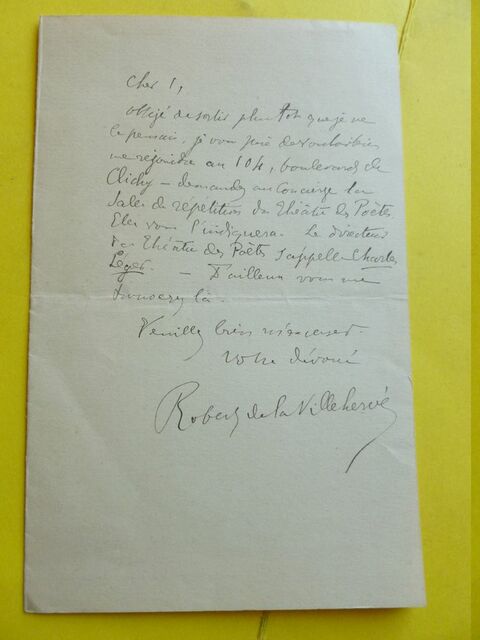 Cher ,
obligé de sortir plus tôt que je ne
le pensais, je vous prie de vouloir bien
me rejoindre au 104, boulevard de
Clichy — demandez au concierge la
Salle de répétition du Théâtre des Poètes.
Elle vous l'indiquera. Le directeur
du Théâtre des Poètes s'appelle Charles
Léger. — D'ailleurs vous me
trouverez là.
Veuillez bien m'excuser.
votre dévoué
Robert de la Villehervé